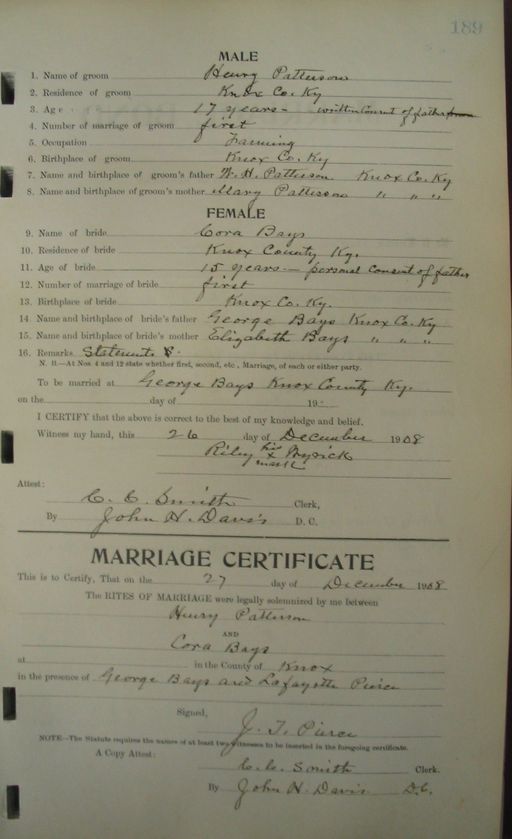 189
MALE
1. Name of groom Henry Patterson
2. Residence of groom Knox Co. Ky
3. Age 17 years - written Consent of father
4. Number of marriage of groom first
5. Occupation Farming
6. Birthplace of groom Knox Co. Ky
7. Name and birthplace of groom's father W. H. Patterson Knox Co. Ky
8. Name and birthplace of groom's mother Mary Patterson " " "
FEMALE
9. Name of bride Cora Bays
10. Residence of bride Knox County Ky.
11. Age of bride 15 years - personal consent of father
12. Number of marriage of bride first
13. Birthplace of bride Knox Co. Ky.
14. Name and birthplace of bride's father George Bays Knox Co. Ky
15. Name and birthplace of bride's mother Elizabeth Bays " " "
16. Remarks Statements
N. B.—At Nos. 4 and 12 state whether first, second, etc., Marriage, of each or either party.
To be married at George Bays Knox County Ky.
on the day of 19
I CERTIFY that the above is correct to the best of my knowledge and belief.
Witness my hand, this 26 day of December 1908
Riley his x mark Mysick
Attest:
C. C. Smith Clerk,
By John H. Davis D. C.
MARRIAGE CERTIFICATE
This is to Certify, That on the 27 day of December 1908
The RITES OF MARRIAGE were legally solemnized by me between
Henry Patterson
AND
Cora Bays
at in the County of Knox
in the presence of George Bays and Lafayette Pierce
Signed,
J. T. Pierce
NOTE—The Statute requires the names of at least two witnesses to be inserted in the foregoing certificate.
A Copy Attest:
C. C. Smith Clerk.
By John H. Davis D.C.